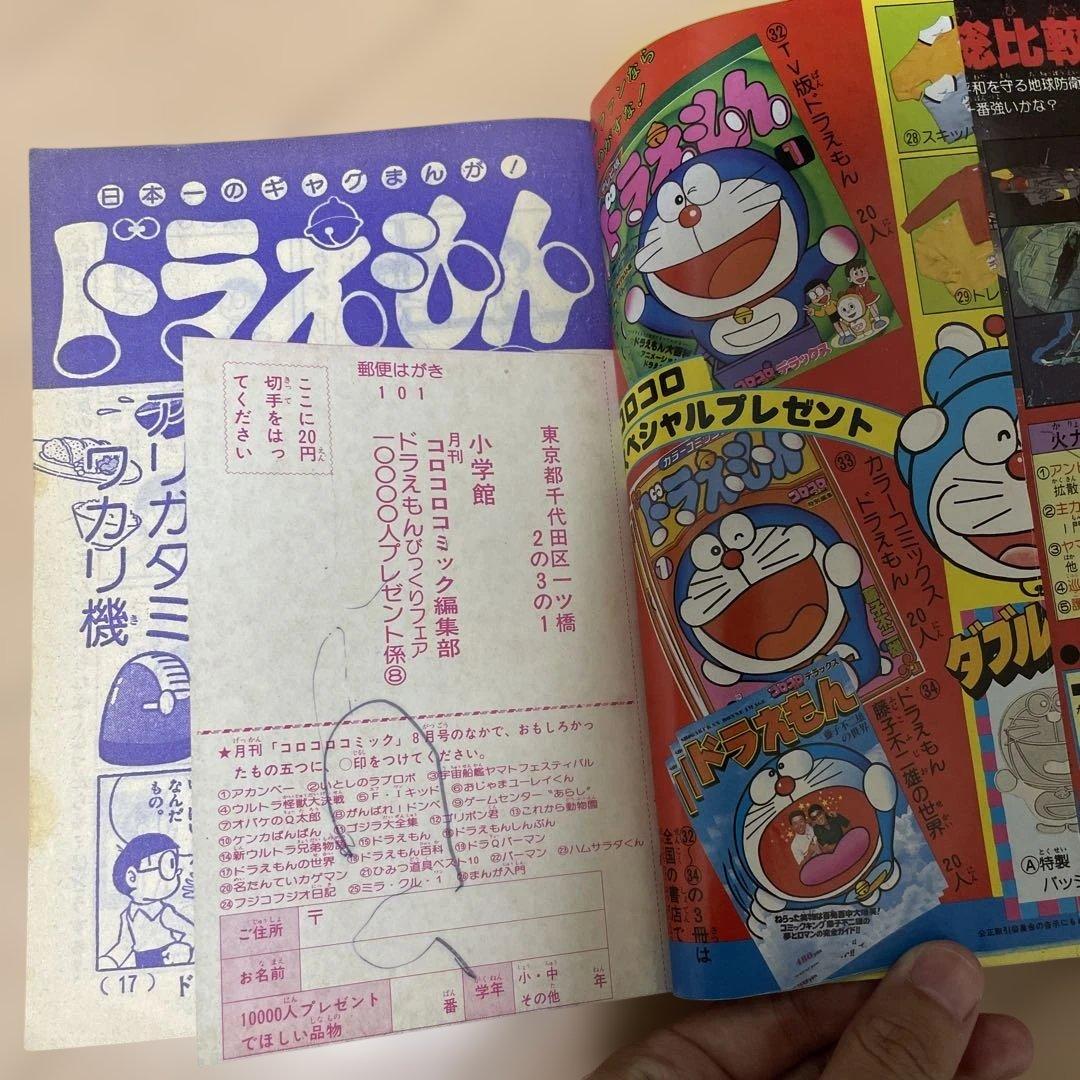 日本一のギャグまんが!
ドラえもん
アリガタミ
ワカリ機
なんだ
もの。
(17)
ド
郵便はがき
101
ここに20円
切手をはっ
てください
東京都千代田区一ツ橋
2の3の1
小学館
月刊 コロコロコミック編集部
ドラえもんびっくりフェア
一〇〇〇〇人プレゼント係⑧
★月刊「コロコロコミック」8月号のなかで、おもしろかっ
たもの五つに、〇印をつけてください。
①アカンベー ②いとしのラブロボ ③宇宙船艦ヤマトフェスティバル
④ウルトラ怪獣大決戦 ⑤F・1キッド ⑥おじゃまユーレイくん
⑦オバケのQ太郎 ⑧がんばれ!ドンベ ⑨ゲームセンター“あらし”
⑩ケンカばんばん ⑪ゴジラ大全集 ⑫ゴリポン君 ⑬これから動物園
⑭新ウルトラ兄弟物語 ⑮ドラえもん ⑯ドラえもんしんぶん
⑰ドラえもんの世界 ⑱ドラえもん百科 ⑲ドラQパーマン
⑳名たんていカゲマン ㉑ひみつ道具ベスト10 ㉒パーマン ㉓ハムサラダくん
㉔フジコフジオ日記 ㉕ミラ・クル・1 ㉖まんが入門
ご住所
〒
お名前
番
学年
小・中
その他
年
10000人プレゼント
でほしい品物
㉜TV版ドラえもん
20人
ドラえもん
1
コロコロ デラックス
コロコロ
スペシャルプレゼント
カラーコミックス
ドラえもん
コロコロ
1
藤子不二雄
㉝カラーコミックス
ドラえもん
20人
コロコロ デラックス
ドラえもん
藤子不二雄
の世界
ねらった笑物は百発百中大爆笑!
コミックキング藤子不二雄の
夢とロマンの完全ガイド!!
480yen
㉞ドラえもん
藤子不二雄の世界
20人
㉜〜㉞の3冊は
全国の書店で
㉘スキッパ
㉙トレ
総比較
平和を守る地球防衛
一番強いかな?
火力
①アン
拡散
②主力
③ヤマ
他
④巡
⑤護
ダブル
Ⓐ特製
バッジ